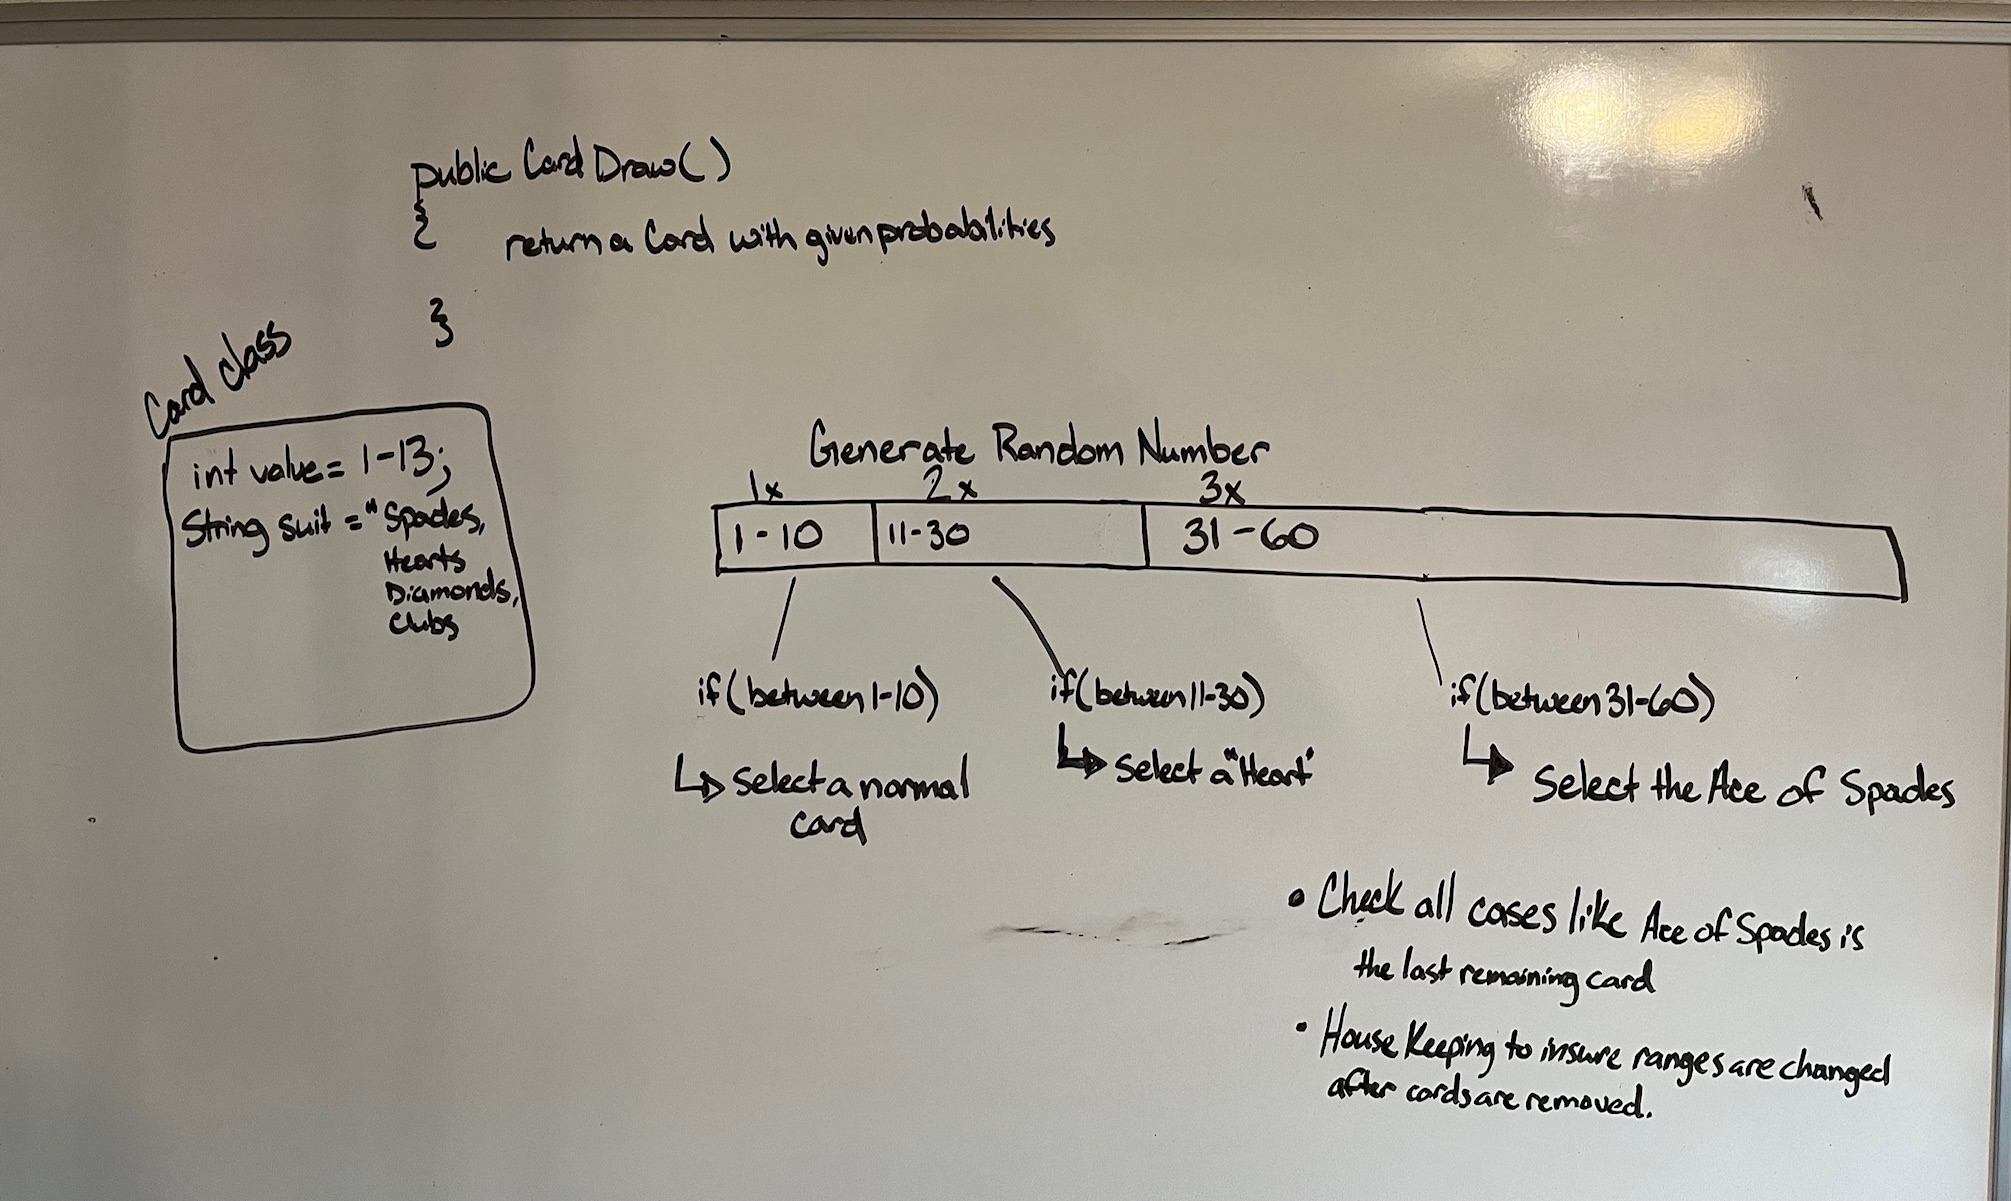 public Card Draw()
{
return a Card with given probabalities
}
Card class
int value = 1-13;
String suit = "Spades,
Hearts
Diamonds,
Clubs
Generate Random Number
1x 2x 3x
1-10 11-30 31-60
if(between 1-10)
Select a normal
card
if(between 11-30)
Select a "Heart"
if(between 31-60)
Select the Ace of Spades
• Check all cases like Ace of Spades is
the last remaining card
• House Keeping to insure ranges are changed
after cards are removed.